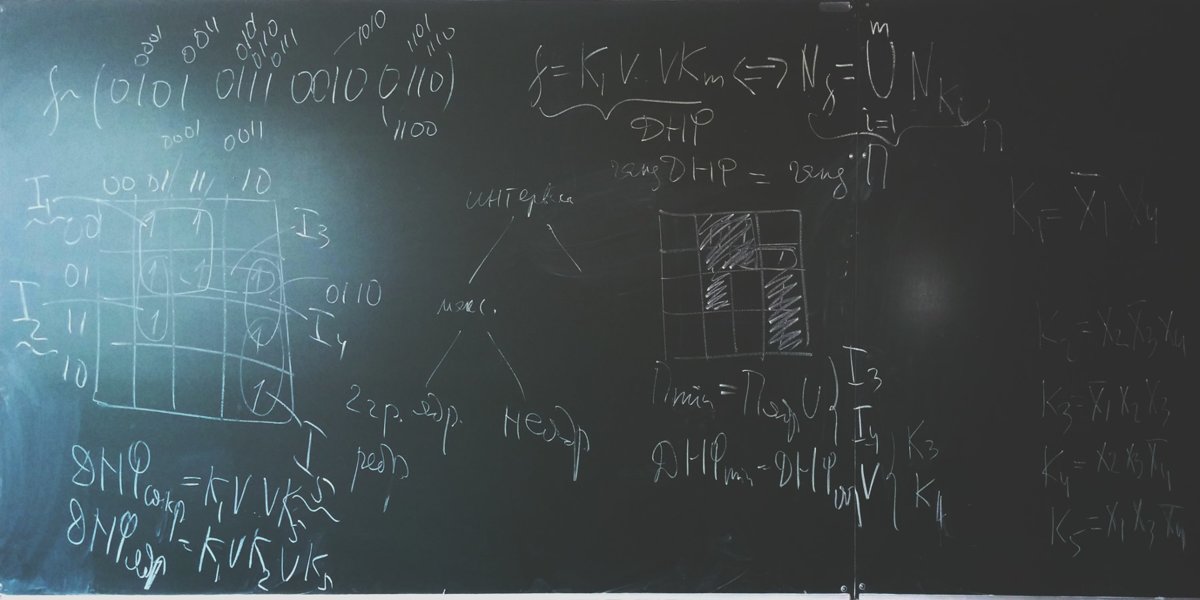 0001 0011 010 0110 0111 1010 1101 1110
f~(0101 0111 0010 0110)
1100
0001 0011
00 01 11 10
I₁
00 1 1
I₃
01 1 1 1
0110
I₂
11 1 1
I₄
10 1
I₅
ДНФсокр = K₁ V..VK₅
ДНФядр = K₁VK₂VK₅
f = K₁ V..VKₘ <=> N_f = ⋃ᵢ₌₁ᵐ N_Kᵢ
ДНФ
П
ранг ДНФ = ранг П
интервал
макс.
ядр.
ребр
неядр
1
Пmin = Пядр U { I₃ I₄
ДНФmin = ДНФядр V { K₃ K₄
K₁ = X̄₁ X₄
K₂ = X₂ X̄₃ X₄
K₃ = X̄₁ X₂ X₃
K₄ = X₂ X₃ X̄₄
K₅ = X₁ X₃ X̄₄